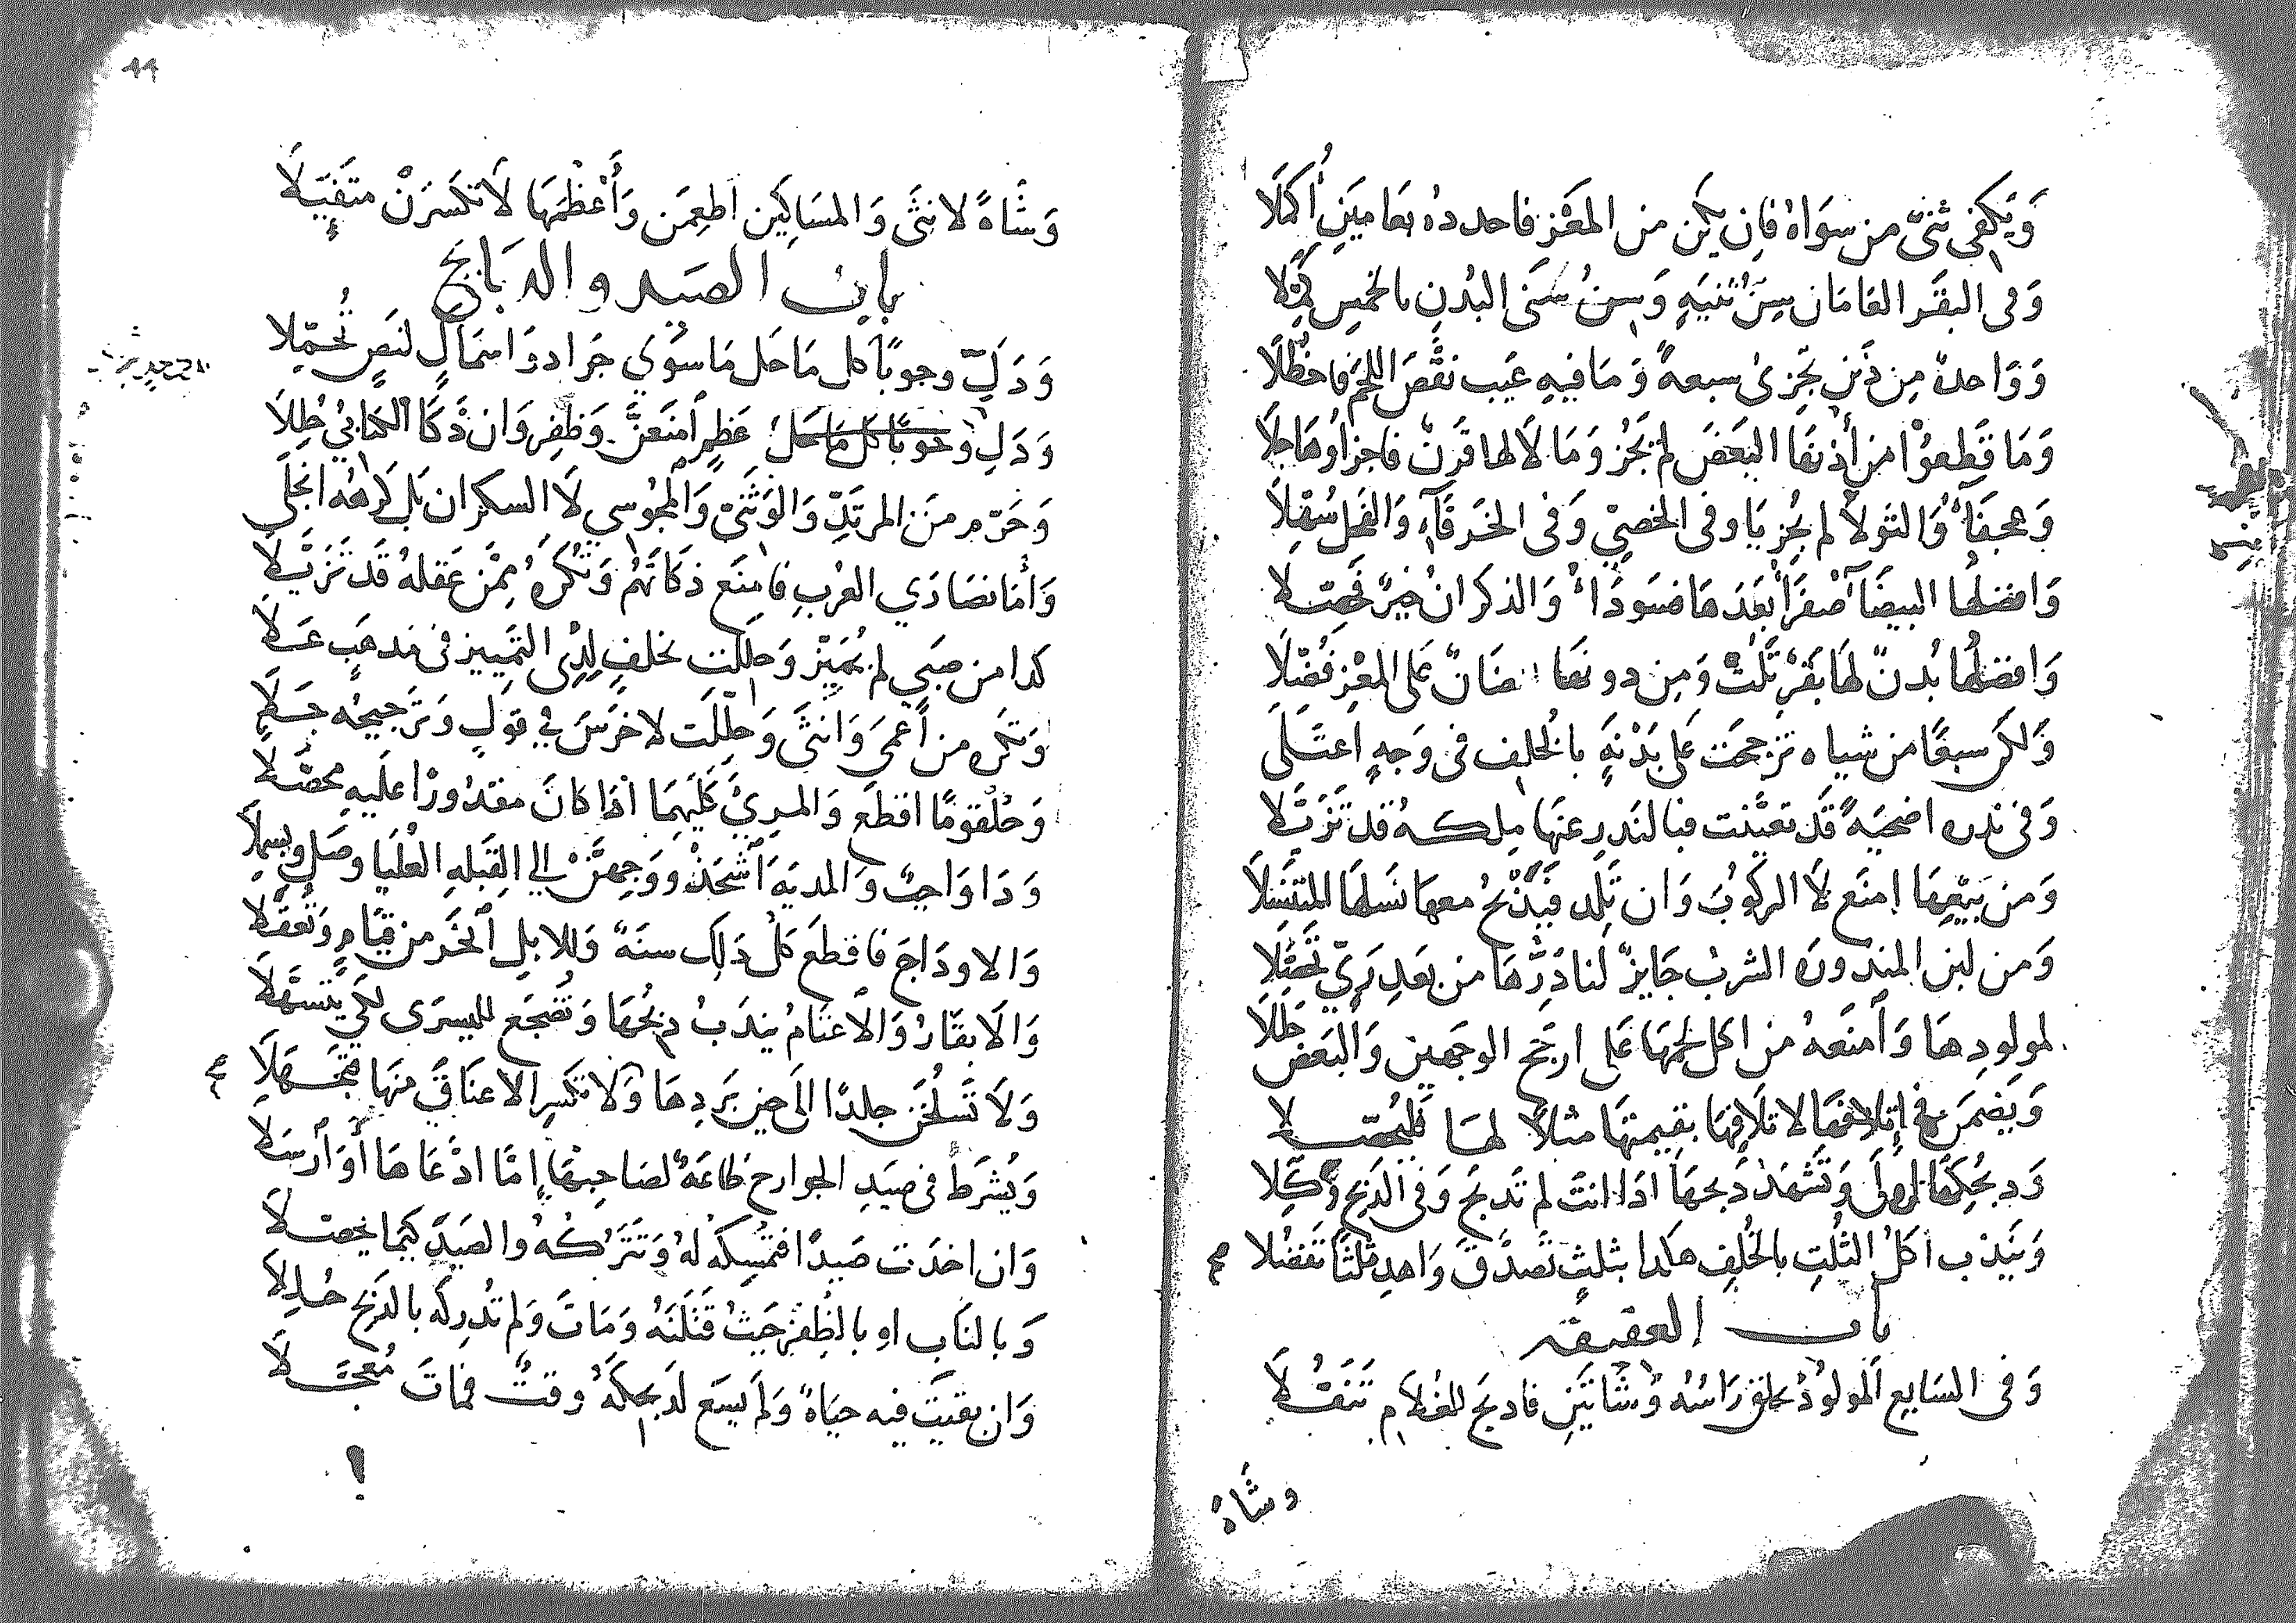 وَيَكفِى ثنىّ من سوَاهُ فإن يكن من المَعَز فاحدده بعامَين أكملَا
وَفى البقَر العَامَان سِنُّ ثنيَهٍ وَسِنُ سَنَى البُدنِ بالخمسِ كمّلا
وَوَاحدةٌ مِن ذَين تجزىُ سبعةً وَمَا فيهِ عَيب نقصَ اللحمَ فاحظُلَا
وَمَا قَطعوُا من أُذنهَا البَعَضَ لم يَجُز وَمَا لَا لها قَرنٌ فاجزاوُهَا جلَا
وَعجفَاُ وَالتَولَا لم يُجزيَا وفى الخصِيّ وَفى الخَرقَآءِ وَالفَحل سُهّلَا
وَافضلُها البيضَآ صفرَا بعَدهَا فسَودَاءُ وَالذكرانُ خيرٌ فحصّلا
وَافضلُها بُدنٌ لهَا بَقَرٌ تَلَتْ وَمِن دونهَا ضَانٌ عَلى المَعْزِ فُضّلَا
وَلكن سبعًا من شياه ترجحَت عَلى بَدْنَهٍ بالخُلف فى وَجهٍ اعتَلَى
وَفى نذره اضحيَهً قَد تعيَّنت فبالنَذرِ عنهَا مِلكهُ قد تَزَيَّلا
وَمن بَيعِهَا إمنَع لَا الركُوبُ وَان تَلِد فيَذْبحُ معهَا نَسلهَا المتنَسّلَا
وَمن لبن المنذورَه الشربُ جَايزٌ لنا دَرّهَا من بَعدِ رَيّ تحصّلَا
لمولودِهَا وَأمنَعهُ من اكل لحمهَا عَلى ارجَح الوجهين وَالبَعَض حَللَا
وَيَضمَن فى إتلافهَا لا تلَافِهَا بقيمتهَا مثلاً لهَا فليُحصّلا
وَذبحُكهَا اولَى وَتَشهَدْ ذبحهَا اذَا انتَ لم تَذبَح وَفى الذبحِ وَكّلا
وَيَنْدُب اكلُ الثُلثِ بالخُلفِ هكذا بثلثٍ تصَدّق وَاهدِ ثلثًا تفضُلا
باب العقيقه
وَفى السَابِعِ المولودُ يحلق رَاسُه وَشَاتَين فاذبَح للغُلَامِ تَنَفُّلَا
وشاةً
وَشَاةً لانثَى وَالمسَاكِين اطعِمَن وَأعْظُمَهَا لَا تكسَرَنْ متَفيّلَا
باب الصيد والدبَابح
وَذَكِّ وجوبًا كل مَا حل مَا سوَي جَرادٍ وَاسمَاكٍ لنَصٍ تُحمّلا
وَذَكِ عَظمٍ امنَعَنَّ وَظفرٍ وَان ذكَّا الكتابيُ حُلِلَا
وَحَرّم منَ المرتَدِّ وَالوَثَنيّ وَالمجُوسي لَا السكران بَل كَرهُه انجَلَى
وَأمَا نصَارَي العُربِ فامنَع ذكَاتهُم وَتُكرَهُ مِمَّن عَقلهُ قَد تَزَيَّلَا
كذا من صَبي لم يُميّز وَحلِلت بخلفٍ لِذِى التَمييز فى مَذهَبٍ عَلَا
وَتكرَه من أعمىَ وَانثَى وَحلِلَت لاخرَسَ فى قولٍ وَترجيحُه جَلَا
وَحُلقومًا اقطع وَالمرِيَّ كليهِمَا اذا كانَ مقدُورًا عَليهِ محصّلَا
وَذا وَاجبٌ وَالمديَهَ اشحَذْ ووَجِهَنْ الي القبلهِ العُليَا وصَلِ وبسملَا
وَالاودَاجَ فاقطعَ كلْ ذَلِك سنَهً وَللابلِ انحَر من قيَامٍ وَتُعقَلَا
وَالابقَارُ وَالاغنَامُ يندَبُ ذبحُهَا وَتُضجَع لليسرَى لكَي يتَسَهّلَا
وَلَا تَسلُخَن جلدًا الَى حين بَردِهَا وَلَا تكسَرِ الاعنَاقَ منهَا فتجَهَلَا
وَيُشرَط فى صَيدِ الجوارح طَاعَةٌ لصَاحِبهَا إمَّا ادْعَاهَا أوَ أرسَلا
وَان اخذَت صَيدًا فتمُسِكهْ لهُ وَتَتَركُهُ والصَيدَ كيمَا يحصّلَا
وَبالنَابِ او بالظُفرِ حَيثُ قَتَلَتهُ وَمَاتَ وَلم تُدرِكه بالذبح حُلِلَا
وَان بقيَت فيه حيَاةٌ وَلَم يسَع لذبحكَهُ وقتٌ فماتَ مُعجّلَا